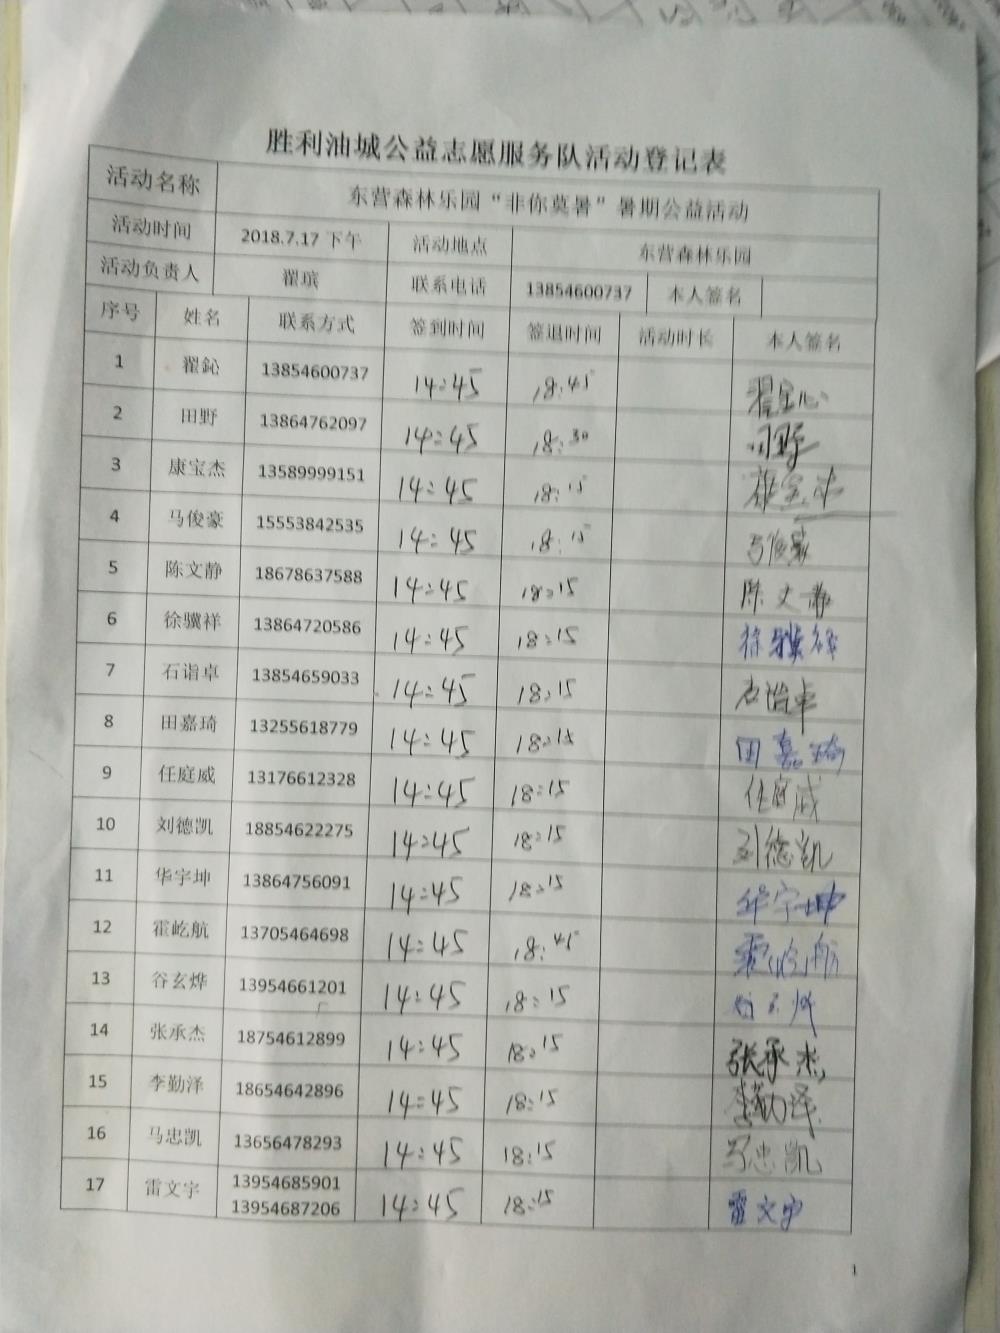 胜利油城公益志愿服务队活动登记表
活动名称 东营森林乐园“非你莫暑”暑期公益活动
活动时间 2018.7.17 下午 活动地点 东营森林乐园
活动负责人 翟瑸 联系电话 13854600737 本人签名
序号 姓名 联系方式 签到时间 签退时间 活动时长 本人签名
1 翟鈊 13854600737 14:45 18:45 翟鈊
2 田野 13864762097 14:45 18:30 田野
3 康宝杰 13589999151 14:45 18:15 康宝杰
4 马俊豪 15553842535 14:45 18:15 马俊豪
5 陈文静 18678637588 14:45 18:15 陈文静
6 徐骥祥 13864720586 14:45 18:15 徐骥祥
7 石诣卓 13854659033 14:45 18:15 石诣卓
8 田嘉琦 13255618779 14:45 18:15 田嘉琦
9 任庭威 13176612328 14:45 18:15 任庭威
10 刘德凯 18854622275 14:45 18:15 刘德凯
11 华宇坤 13864756091 14:45 18:15 华宇坤
12 霍屹航 13705464698 14:45 18:45 霍屹航
13 谷玄烨 13954661201 14:45 18:15 谷玄烨
14 张承杰 18754612899 14:45 18:15 张承杰
15 李勤泽 18654642896 14:45 18:15 李勤泽
16 马忠凯 13656478293 14:45 18:15 马忠凯
17 雷文宇 13954685901 14:45 18:15 雷文宇
13954687206
1